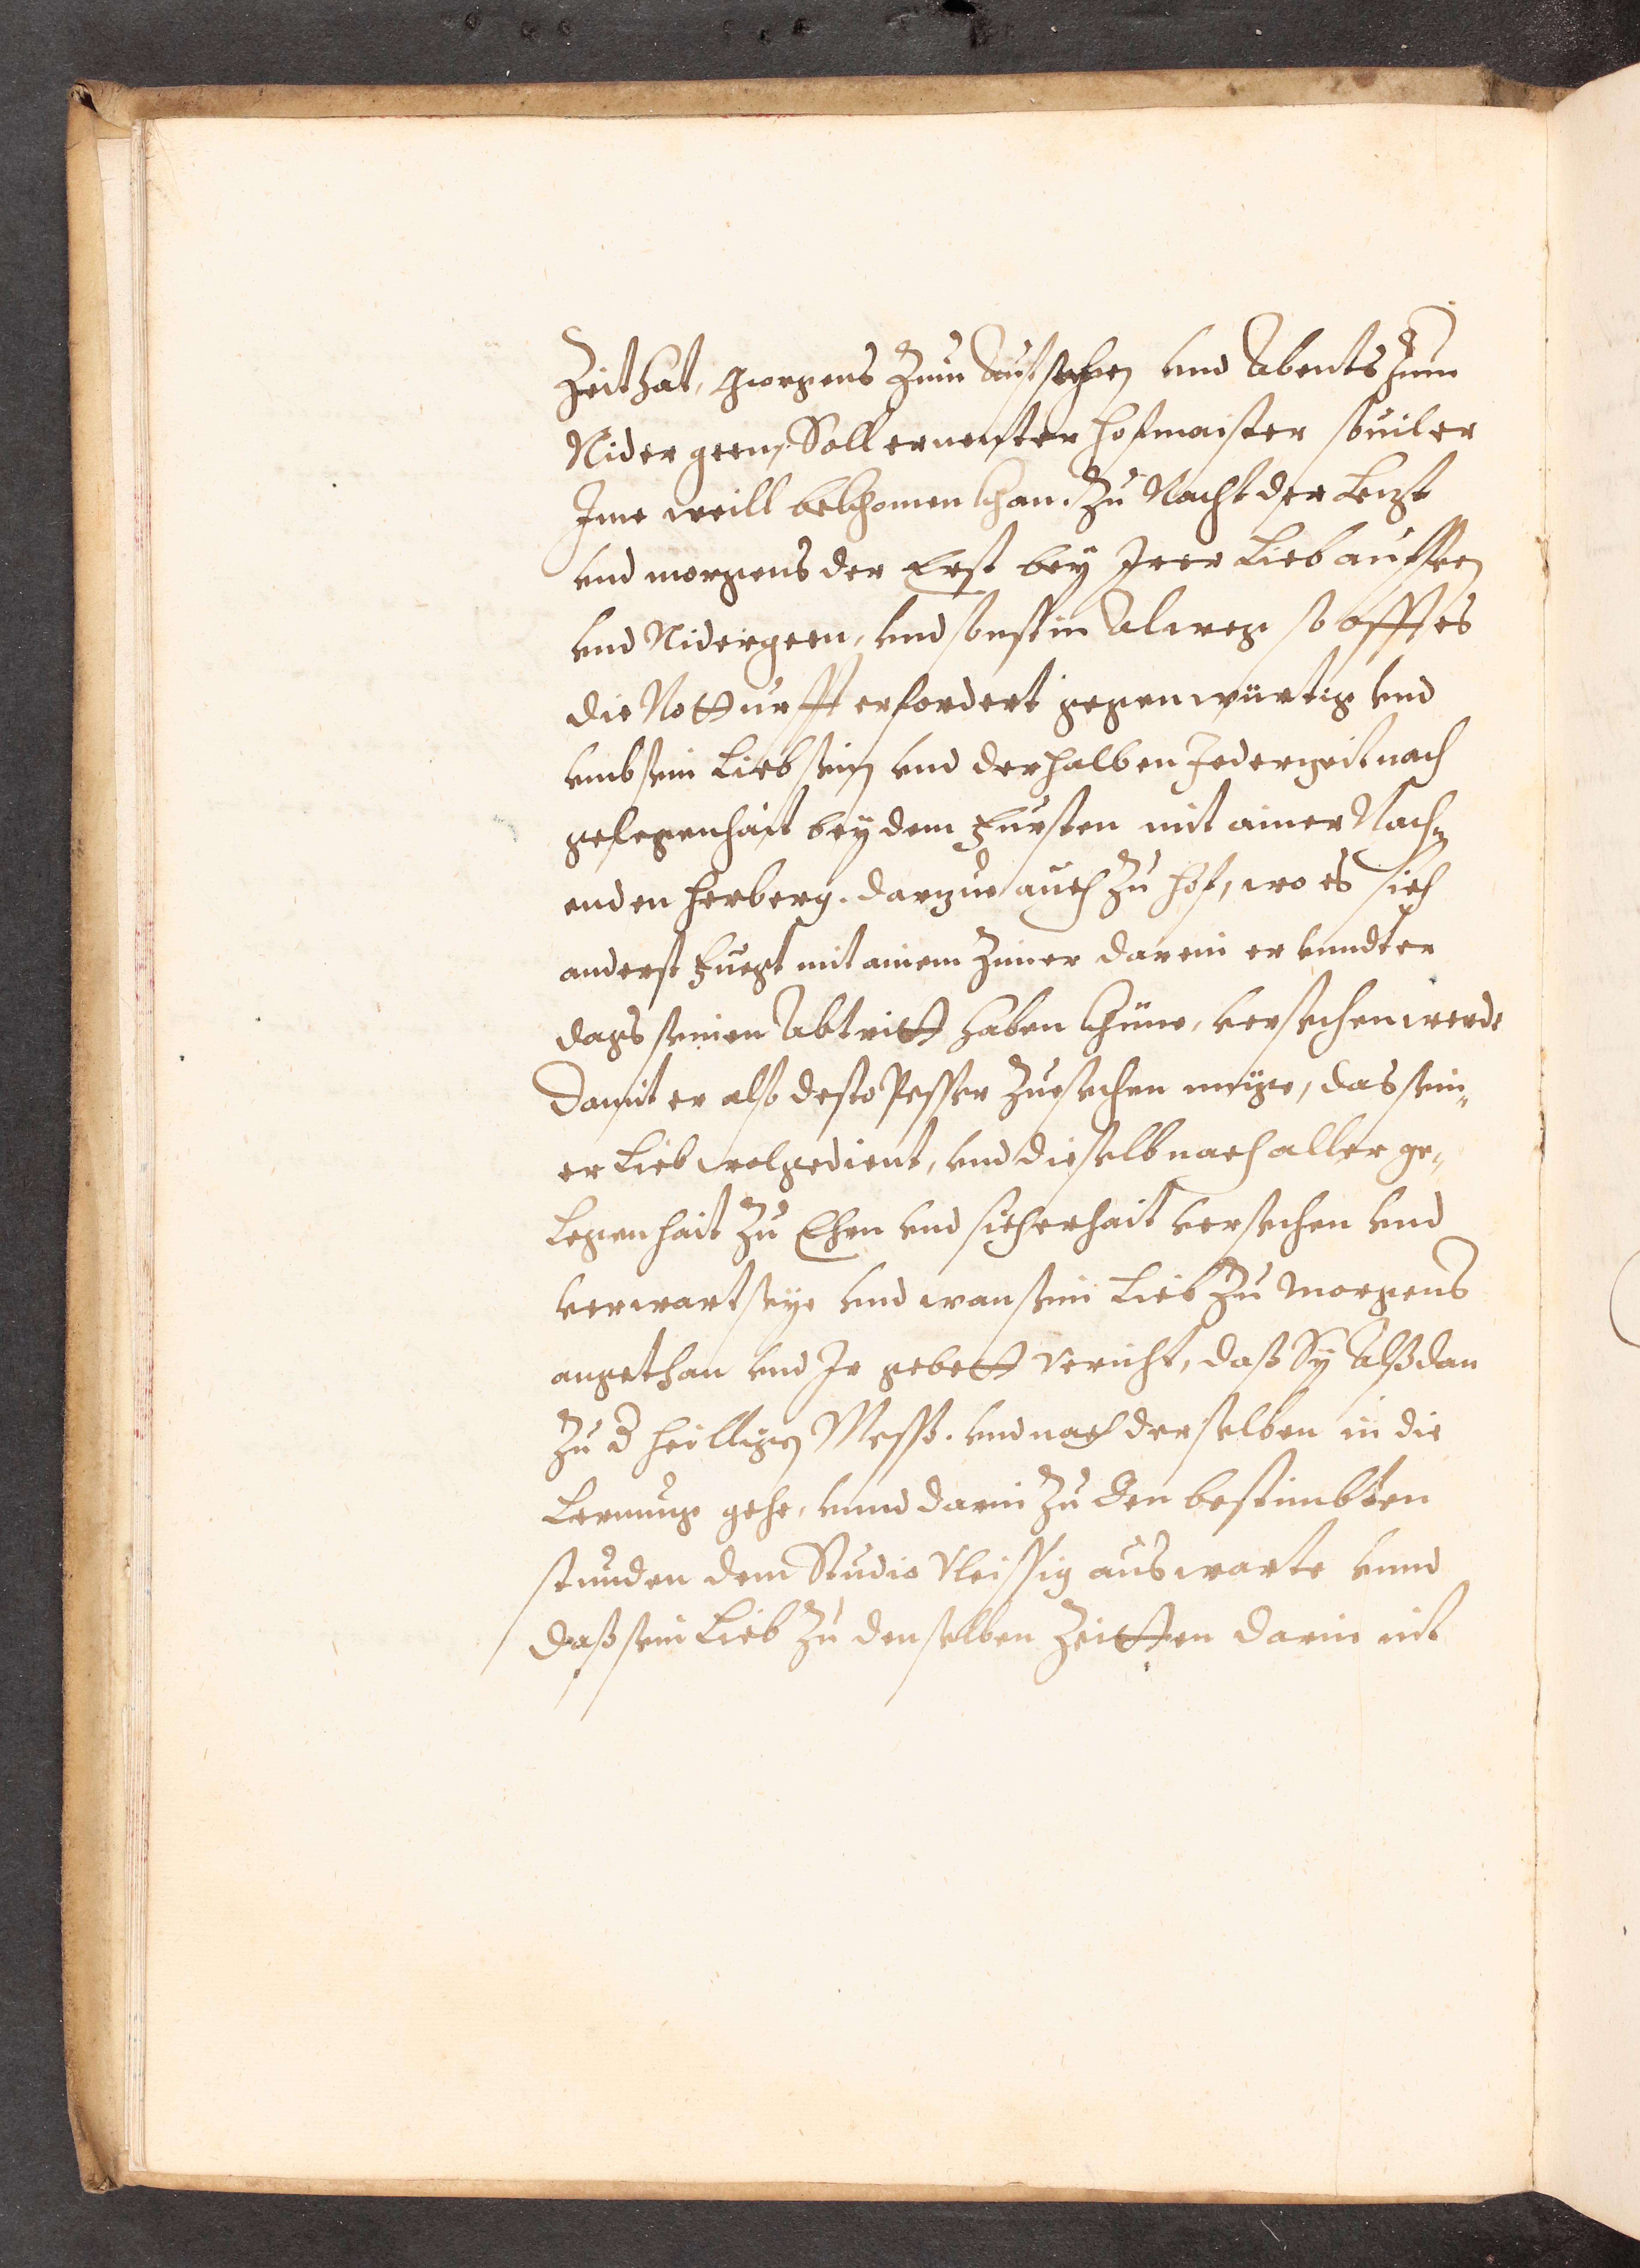 Zeit hat, morgens Zum Aufstehen vnd Abents Zum
Nider geen, Soll ernenter hofmaister souil er
Ime weill bekhomen khan. Zu Nacht der Lezst
vnd morgens der Erst bey Irer Lieb aufsteen
vnd Nidergeen, vnd sonst in Alweg so offt es
die Notturfft erfordert gegenwürtig vnd
vmb sein Lieb sein vnd derhalben Jederzeit nach
gelegenhait bey dem Fursten mit ainer Nach„
enden herberg. darzue auch Zu hof, wo es sich
anderst fuegt mit ainem Zimer darein er vnndter
dags seinen Abtritt haben khüne, versechen werde
Damit er also desto Pesser Zuesechen müge, das sein„
er Lieb wolgedient, vnd dieselb nach aller ge„
Legenhait Zu Ehrn vnd sicherhait versechen vnd
verwart seye vnd wan sein Lieb Zu morgens
angethan vnd Ir gebett Vericht, daß Sy Alßdan
Zu d heilligen Messß. vnd nach derselben in die
Lernung gehe, vnnd darin Zu den bestimbten
stunden dem Studio Vleissig auswarte vnnd
daß sein Lieb Zu denselben Zeitten darin nit